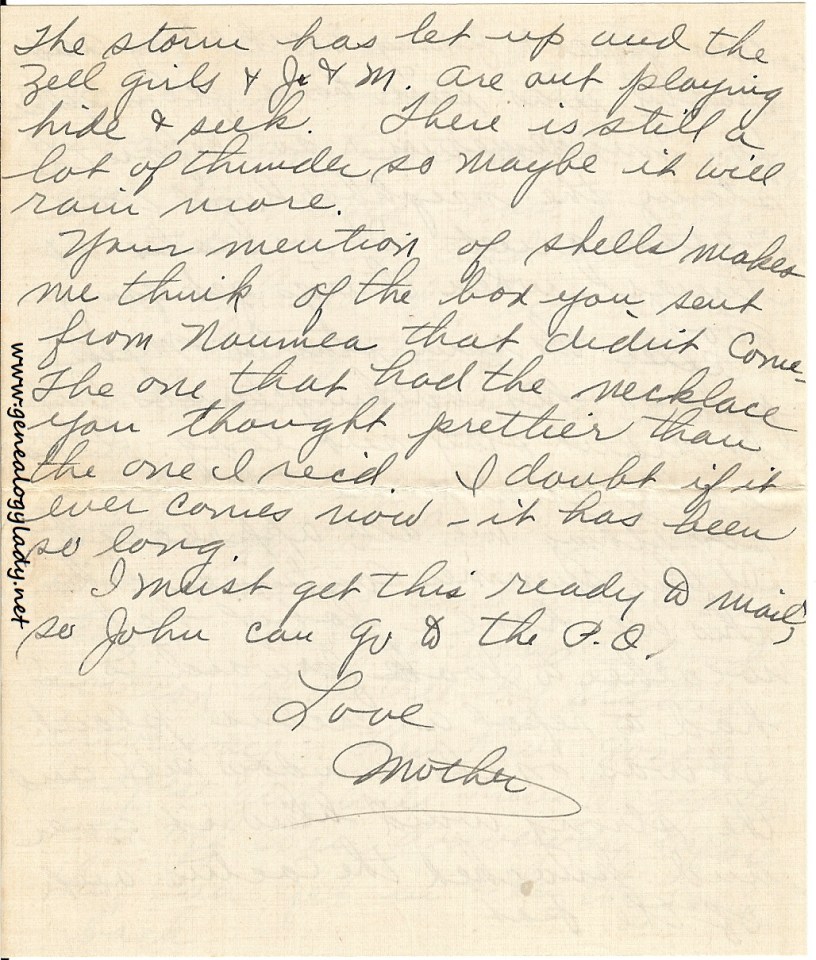 The storm has let up and the
Zell girls & J. & M. are out playing
hide & seek. There is still a
lot of thunder so maybe it will
rain more.
Your mention of shells makes
me think of the box you sent
from Noumea that didn't come –
The one that had the necklace
you thought prettier than
the one I rec'd. I doubt if it
ever comes now – it has been
so long.
I must get this ready to mail,
so John can go to the P.O.
Love
Mother
www.genealogylady.net